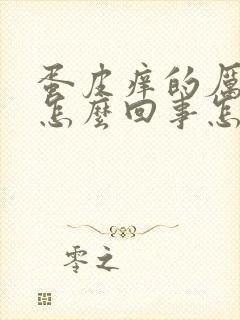 蛋皮痒的厉
怎麼回事怎
零之